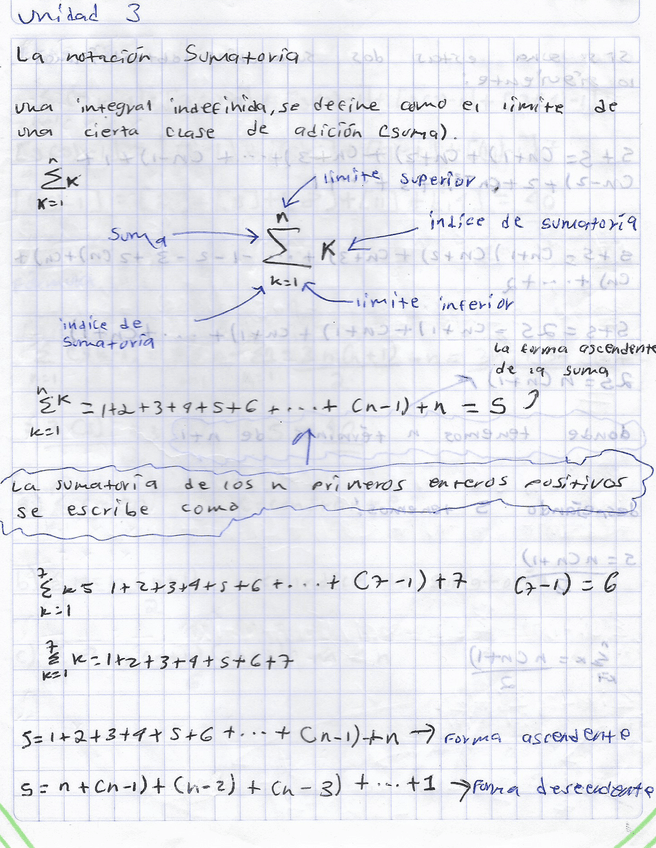 Unidad 3
La notación Sumatoria
una integral indefinida, se define como el límite de
una cierta clase de adición (suma).
n
∑ K
K=1
límite superior
suma
n
∑ K
k=1
índice de sumatoria
límite inferior
índice de
sumatoria
La forma ascendente
de la suma
n
∑ K = 1+2+3+4+5+6 + ... + (n-1)+n = S
k=1
La sumatoria de los n primeros enteros positivos
se escribe como
7
∑ k= 1+2+3+4+5+6 + ... + (7-1)+7 (7-1) = 6
k=1
7
∑ K=1+2+3+4+5+6+7
k=1
S=1+2+3+4+5+6 + ... + (n-1)+n → Forma ascendente
S= n+(n-1)+(n-2) + (n-3) + ... +1 → Forma descendente